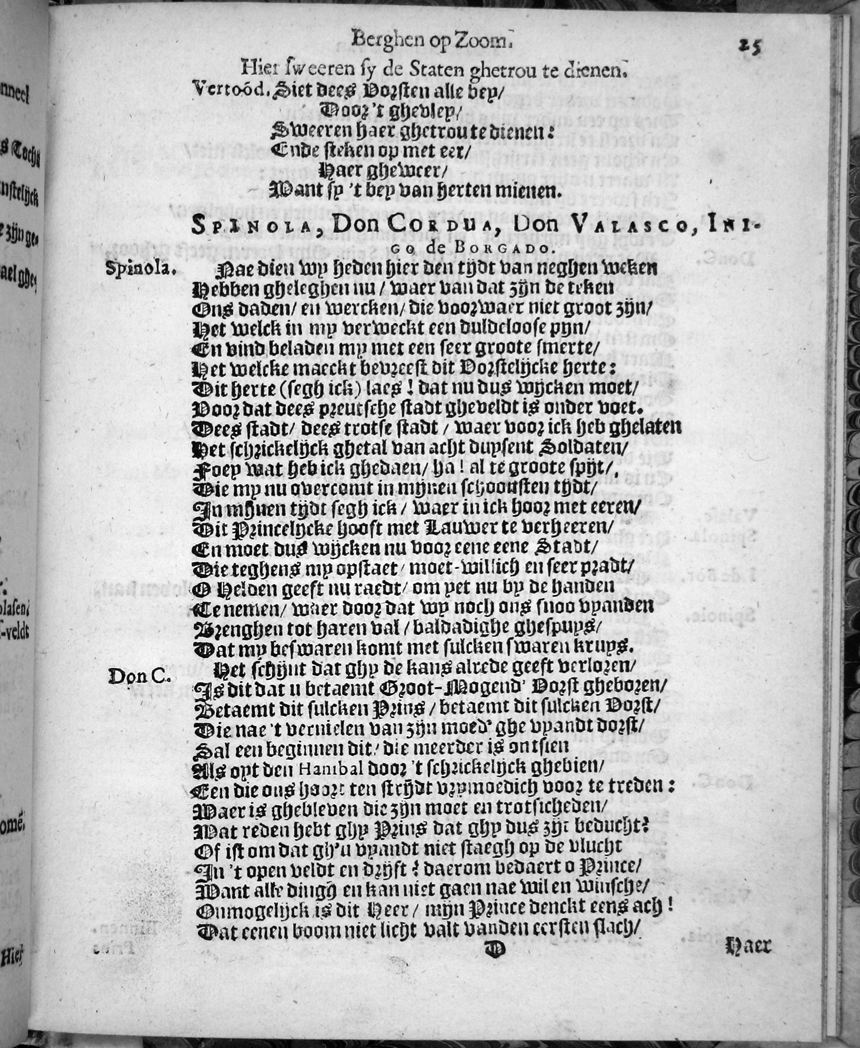 Berghen op Zoom.
25
Hier sweeren sy de Staten ghetrou te dienen.
Vertoōd. Siet dees Vorsten alle bey/
Door 't ghevley/
Sweeren haer ghetrou te dienen:
Ende steken op met eer/
Haer gheweer/
Want sy 't bey van herten mienen.
SPINOLA, Don CORDUA, Don VALASCO, INI-
GO de BORGADO.
Spinola. Nae dien wy heden hier den tydt van neghen weken
Hebben gheleghen nu / waer van dat zijn de teken
Ons daden/ en wercken/ die voorwaer niet groot zijn/
Het welck in my verweckt een duldeloose pyn/
En vind beladen my met een seer groote smerte/
Het welcke maeckt bevreest dit Vorstelijcke herte:
Dit herte (segh ick) laes! dat nu dus wijcken moet/
Voor dat dees preutsche stadt gheveldt is onder voet.
Dees stadt/ dees trotse stadt / waer voor ick heb ghelaten
Het schrickelijck ghetal van acht duysent Soldaten/
Foey wat heb ick ghedaen/ ha! al te groote spijt/
Die my nu overcomt in mijnen schoonsten tijdt/
In mijnen tydt segh ick / waer in ick hoor met eeren/
Dit Princelycke hooft met Lauwer te verheeren/
En moet dus wijcken nu voor eene eene Stadt/
Die teghens my opstaet/ moet-willich en seer pradt/
O Helden geeft nu raedt/ om yet nu by de handen
Te nemen/ waer door dat wy noch ons snoo vyanden
Brenghen tot haren val/ baldadighe ghespuys/
Dat my beswaren komt met sulcken swaren kruys.
Don C. Het schijnt dat ghy de kans alrede geeft verloren/
Is dit dat u betaemt Groot-Mogend' Vorst gheboren/
Betaemt dit sulcken Prins/ betaemt dit sulcken Vorst/
Die nae 't vernielen van zijn moed' ghe vyandt dorst/
Sal een beginnen dit/ die meerder is ontsien
Als oyt den Hanibal door 't schrickelijck ghebien/
Een die ons hoort ten strijdt vrymoedich voor te treden:
Waer is ghebleven die zijn moet en trotsicheden/
Wat reden hebt ghy Prins dat ghy dus zijt beducht?
Of ist om dat gh'u vyandt niet staegh op de vlucht
In 't open veldt en drijft? daerom bedaert o Prince/
Want alle dingh en kan niet gaen nae wil en winsche/
Onmogelijck is dit Heer/ mijn Prince denckt eens ach!
Dat eenen boom niet licht valt vanden eersten slach/
D
Haer